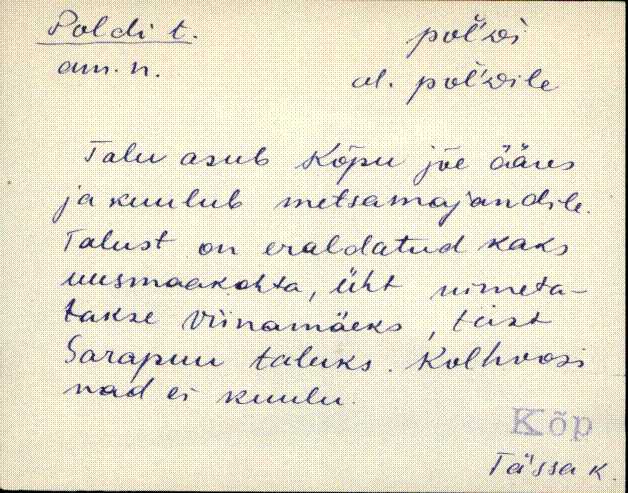 Poldi t. pol'di
am. n. al. pol'dile
Talu asub Kõpu jõe ääres
ja kuulub metsamajandile.
Talust on eraldatud kaks
uusmaakohta, üht nimeta-
takse Viinamäeks, teist
Sarapuu taluks. Kolhoosi
nad ei kuulu.
Kõp
Tässa k.